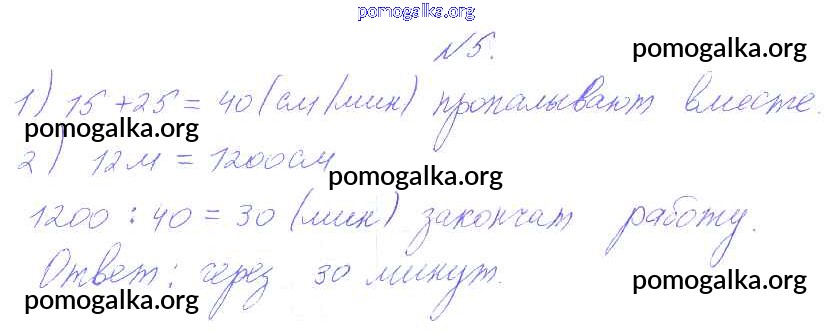 pomogalka.org
№5.
pomogalka.org
1) 15+25=40(см/мин) пропалывают вместе.
pomogalka.org
2) 12м=1200см
pomogalka.org
1200:40=30(мин) закончат работу.
Ответ: через 30 минут.
pomogalka.org
pomogalka.org